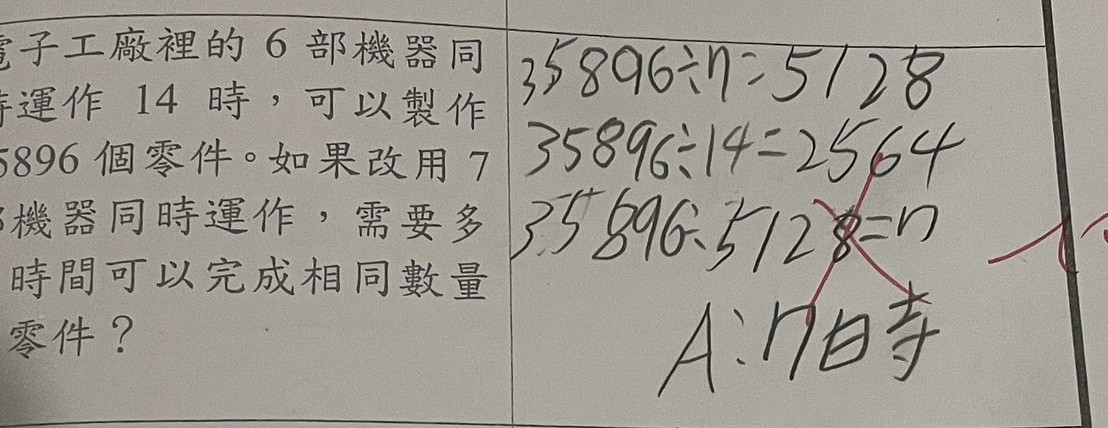 子工廠裡的 6 部機器同
運作 14 時，可以製作
5896 個零件。如果改用 7
機器同時運作，需要多
時間可以完成相同數量
零件？
35896÷7=5128
35896÷14=2564
35896÷5128=7
A:7時